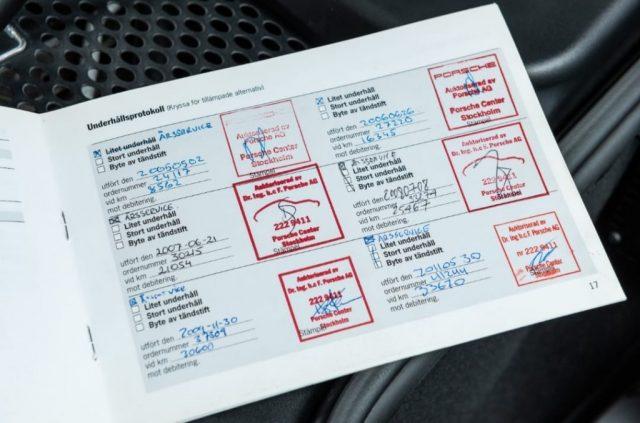 Underhållsprotokoll (Kryssa för tillämpade alternativ)
Litet underhåll ÅRSSERVICE
Stort underhåll
Byte av tändstift
utfört den
ordernummer 24117
vid km 8562
mot debitering.
PORSCHE
Auktoriserad av
Porsche AG
Porsche Center
Stockholm
Stämpel
ÅRSSERVICE
Litet underhåll
Stort underhåll
Byte av tändstift
utfört den 2007-06-21
ordernummer 30215
vid km 21054
mot debitering.
Auktoriserad av
Dr. Ing. h.c F. Porsche AG
222 9411
Porsche Center
Stockholm
Litet underhåll
Stort underhåll
Byte av tändstift
utfört den
ordernummer
vid km 30600
mot debitering.
Auktoriserad av
Dr. Ing. h.c F. Porsche AG
222 9411
Porsche Center
Stockholm
Stämpel
Litet underhåll
Stort underhåll
Byte av tändstift
utfört den 20060626
ordernummer 27220
vid km 16345
mot debitering.
PORSCHE
Auktoriserad av
Porsche AG
Porsche Center
Stockholm
Stämpel
ÅRSSERVICE
Litet underhåll
Stort underhåll
Byte av tändstift
utfört den 20080708
ordernummer
vid km 25767
mot debitering.
Auktoriserad av
Dr. Ing. h.c F. Porsche AG
222 9411
Porsche Center
Stockholm
Stämpel
ÅRSSERVICE
Litet underhåll
Stort underhåll
Byte av tändstift
utfört den 2011 05 30
ordernummer
vid km
mot debitering.
Auktoriserad av
Dr. Ing h.c F. Porsche AG
nr 222 9411
Porsche Center
Stockholm
17